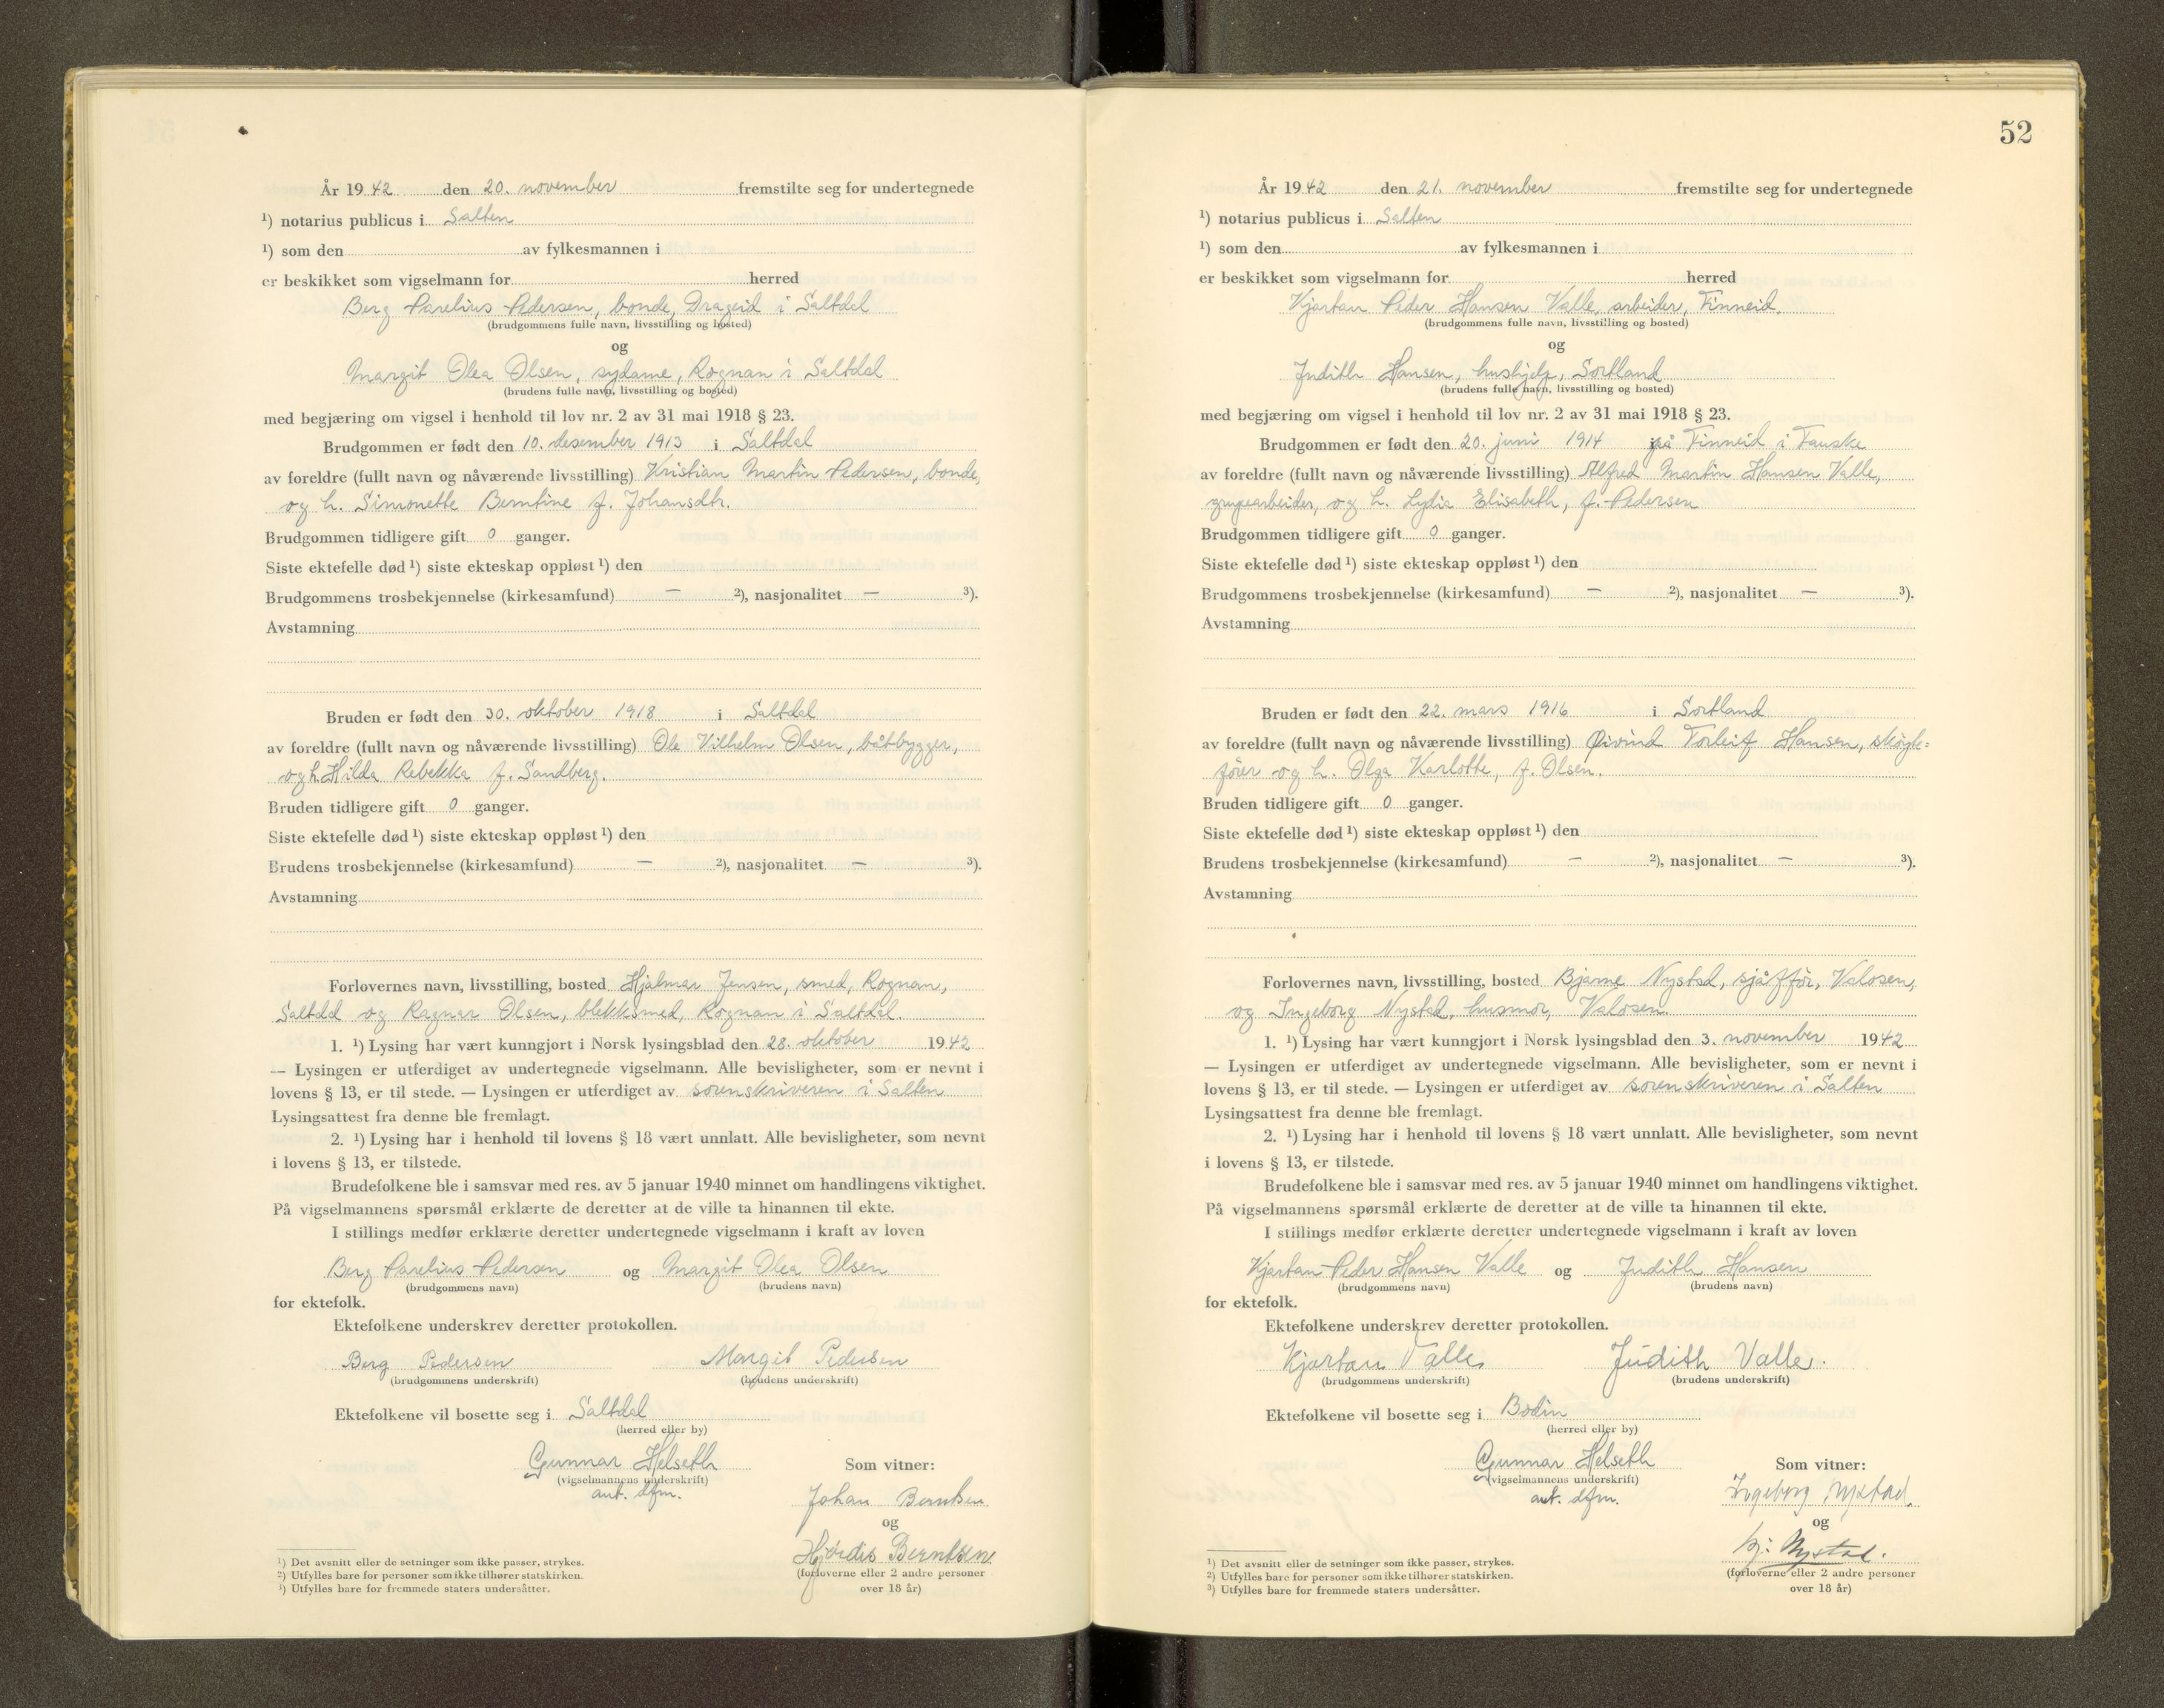 År 1942 den 20. november fremstilte seg for undertegnede
¹) notarius publicus i Salten
¹) som den av fylkesmannen i
er beskikket som vigselmann for herred
Berg Parelius Pedersen, bonde, Drageid i Saltdal
(brudgommens fulle navn, livsstilling og bosted)
og
Margit Olea Olsen, sydame, Rognan i Saltdal
(brudens fulle navn, livsstilling og bosted)
med begjæring om vigsel i henhold til lov nr. 2 av 31 mai 1918 § 23.
Brudgommen er født den 10. desember 1913 i Saltdal
av foreldre (fullt navn og nåværende livsstilling) Kristian Martin Pedersen, bonde,
og h. Simonette Berntine f. Johansdtr.
Brudgommen tidligere gift 0 ganger.
Siste ektefelle død ¹) siste ekteskap oppløst ¹) den
Brudgommens trosbekjennelse (kirkesamfund) — ²), nasjonalitet — ³).
Avstamning
Bruden er født den 30. oktober 1918 i Saltdal
av foreldre (fullt navn og nåværende livsstilling) Ole Vilhelm Olsen, båtbygger,
og h. Hilda Rebekka f. Sandberg.
Bruden tidligere gift 0 ganger.
Siste ektefelle død ¹) siste ekteskap oppløst ¹) den
Brudens trosbekjennelse (kirkesamfund) — ²), nasjonalitet — ³).
Avstamning
Forlovernes navn, livsstilling, bosted Hjalmar Jensen, smed, Rognan,
Saltdal og Ragnar Olsen, blekksmed, Rognan i Saltdal.
1. ¹) Lysing har vært kunngjort i Norsk lysingsblad den 28. oktober 1942
— Lysingen er utferdiget av undertegnede vigselmann. Alle bevisligheter, som er nevnt i
lovens § 13, er til stede. — Lysingen er utferdiget av sorenskriveren i Salten
Lysingsattest fra denne ble fremlagt.
2. ¹) Lysing har i henhold til lovens § 18 vært unnlatt. Alle bevisligheter, som nevnt
i lovens § 13, er tilstede.
Brudefolkene ble i samsvar med res. av 5 januar 1940 minnet om handlingens viktighet.
På vigselmannens spørsmål erklærte de deretter at de ville ta hinannen til ekte.
I stillings medfør erklærte deretter undertegnede vigselmann i kraft av loven
Berg Parelius Pedersen og Margit Olea Olsen
(brudgommens navn) (brudens navn)
for ektefolk.
Ektefolkene underskrev deretter protokollen.
Berg Pedersen Margit Pedersen
(brudgommens underskrift) (brudens underskrift)
Ektefolkene vil bosette seg i Saltdal
(herred eller by)
Gunnar Helseth Som vitner:
(vigselmannens underskrift)
aut. dfm.
Johan Berntsen
og
Hjørdis Berntsen
(forloverne eller 2 andre personer
over 18 år)
¹) Det avsnitt eller de setninger som ikke passer, strykes.
²) Utfylles bare for personer som ikke tilhører statskirken.
¹) Utfylles bare for fremmede staters undersåtter.
52
År 1942 den 21. november fremstilte seg for undertegnede
¹) notarius publicus i Salten
¹) som den av fylkesmannen i
er beskikket som vigselmann for herred
Kjartan Peder Hansen Valle, arbeider, Finneid.
(brudgommens fulle navn, livsstilling og bosted)
og
Judith Hansen, hushjelp, Sortland
(brudens fulle navn, livsstilling og bosted)
med begjæring om vigsel i henhold til lov nr. 2 av 31 mai 1918 § 23.
Brudgommen er født den 20. juni 1914 på Finneid i Fauske
av foreldre (fullt navn og nåværende livsstilling) Alfred Martin Hansen Valle,
grupearbeider, og h. Lydia Elisabeth, f. Pedersen
Brudgommen tidligere gift 0 ganger.
Siste ektefelle død ¹) siste ekteskap oppløst ¹) den
Brudgommens trosbekjennelse (kirkesamfund) — ²), nasjonalitet — ³).
Avstamning
Bruden er født den 22. mars 1916 i Sortland
av foreldre (fullt navn og nåværende livsstilling) Øivind Torleif Hansen, skøyte=
fører og h. Olga Karlotte, f. Olsen.
Bruden tidligere gift 0 ganger.
Siste ektefelle død ¹) siste ekteskap oppløst ¹) den
Brudens trosbekjennelse (kirkesamfund) — ²), nasjonalitet — ³).
Avstamning
Forlovernes navn, livsstilling, bosted Bjarne Nystad, sjåffør, Valosen,
og Ingeborg Nystad, husmor, Valosen.
1. ¹) Lysing har vært kunngjort i Norsk lysingsblad den 3. november 1942
— Lysingen er utferdiget av undertegnede vigselmann. Alle bevisligheter, som er nevnt i
lovens § 13, er til stede. — Lysingen er utferdiget av sorenskriveren i Salten
Lysingsattest fra denne ble fremlagt.
2. ¹) Lysing har i henhold til lovens § 18 vært unnlatt. Alle bevisligheter, som nevnt
i lovens § 13, er tilstede.
Brudefolkene ble i samsvar med res. av 5 januar 1940 minnet om handlingens viktighet.
På vigselmannens spørsmål erklærte de deretter at de ville ta hinannen til ekte.
I stillings medfør erklærte deretter undertegnede vigselmann i kraft av loven
Kjartan Peder Hansen Valle og Judith Hansen
(brudgommens navn) (brudens navn)
for ektefolk.
Ektefolkene underskrev deretter protokollen.
Kjartan Valle Judith Valle.
(brudgommens underskrift) (brudens underskrift)
Ektefolkene vil bosette seg i Bodin
(herred eller by)
Gunnar Helseth Som vitner:
(vigselmannens underskrift)
aut. dfm.
Ingeborg Nystad
og
Bj. Nystad.
(forloverne eller 2 andre personer
over 18 år)
¹) Det avsnitt eller de setninger som ikke passer, strykes.
²) Utfylles bare for personer som ikke tilhører statskirken.
³) Utfylles bare for fremmede staters undersåtter.